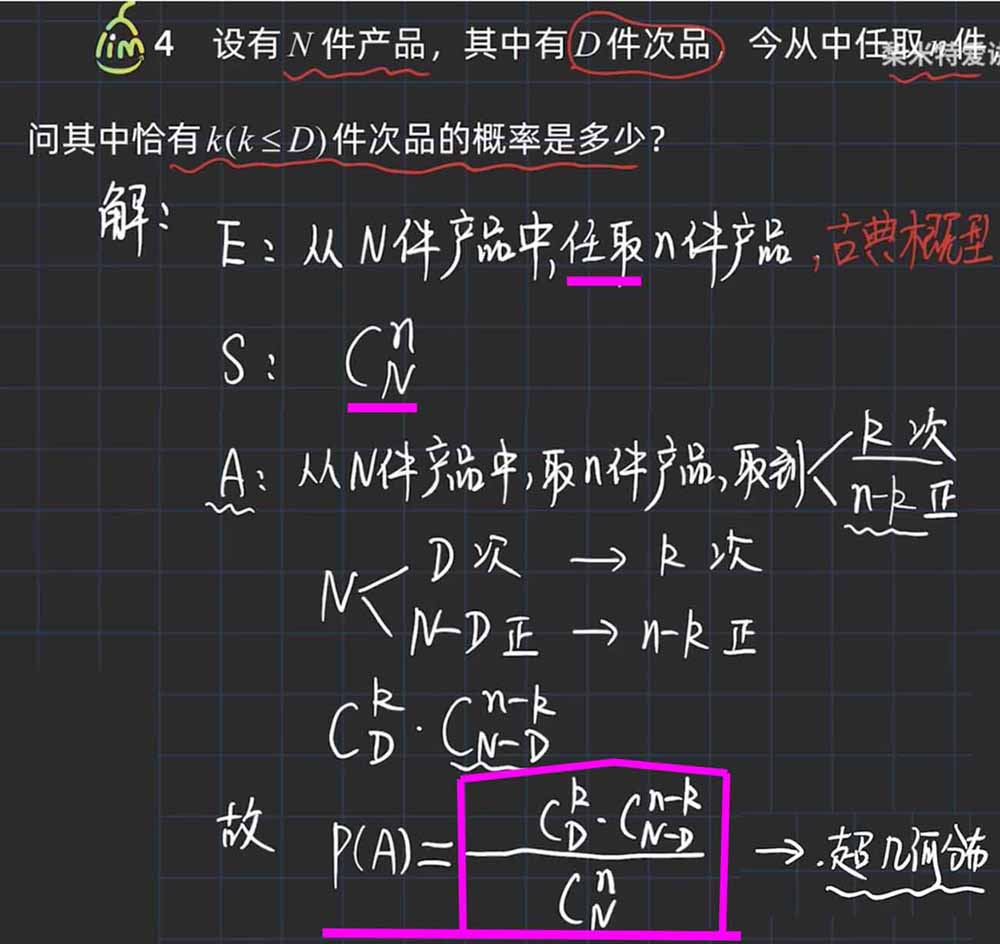 lim 4 设有 N 件产品，其中有 D 件次品，今从中任取 n 件
问其中恰有 k(k≤D) 件次品的概率是多少？
解：
E：从N件产品中，任取n件产品，古典概型
S： C_N^n
A：从N件产品中，取n件产品，取到< k次
n-k正
N< D次 → k次
N-D正 → n-k正
C_D^k · C_{N-D}^{n-k}
故 P(A)= (C_D^k · C_{N-D}^{n-k}) / C_N^n → .超几何分布